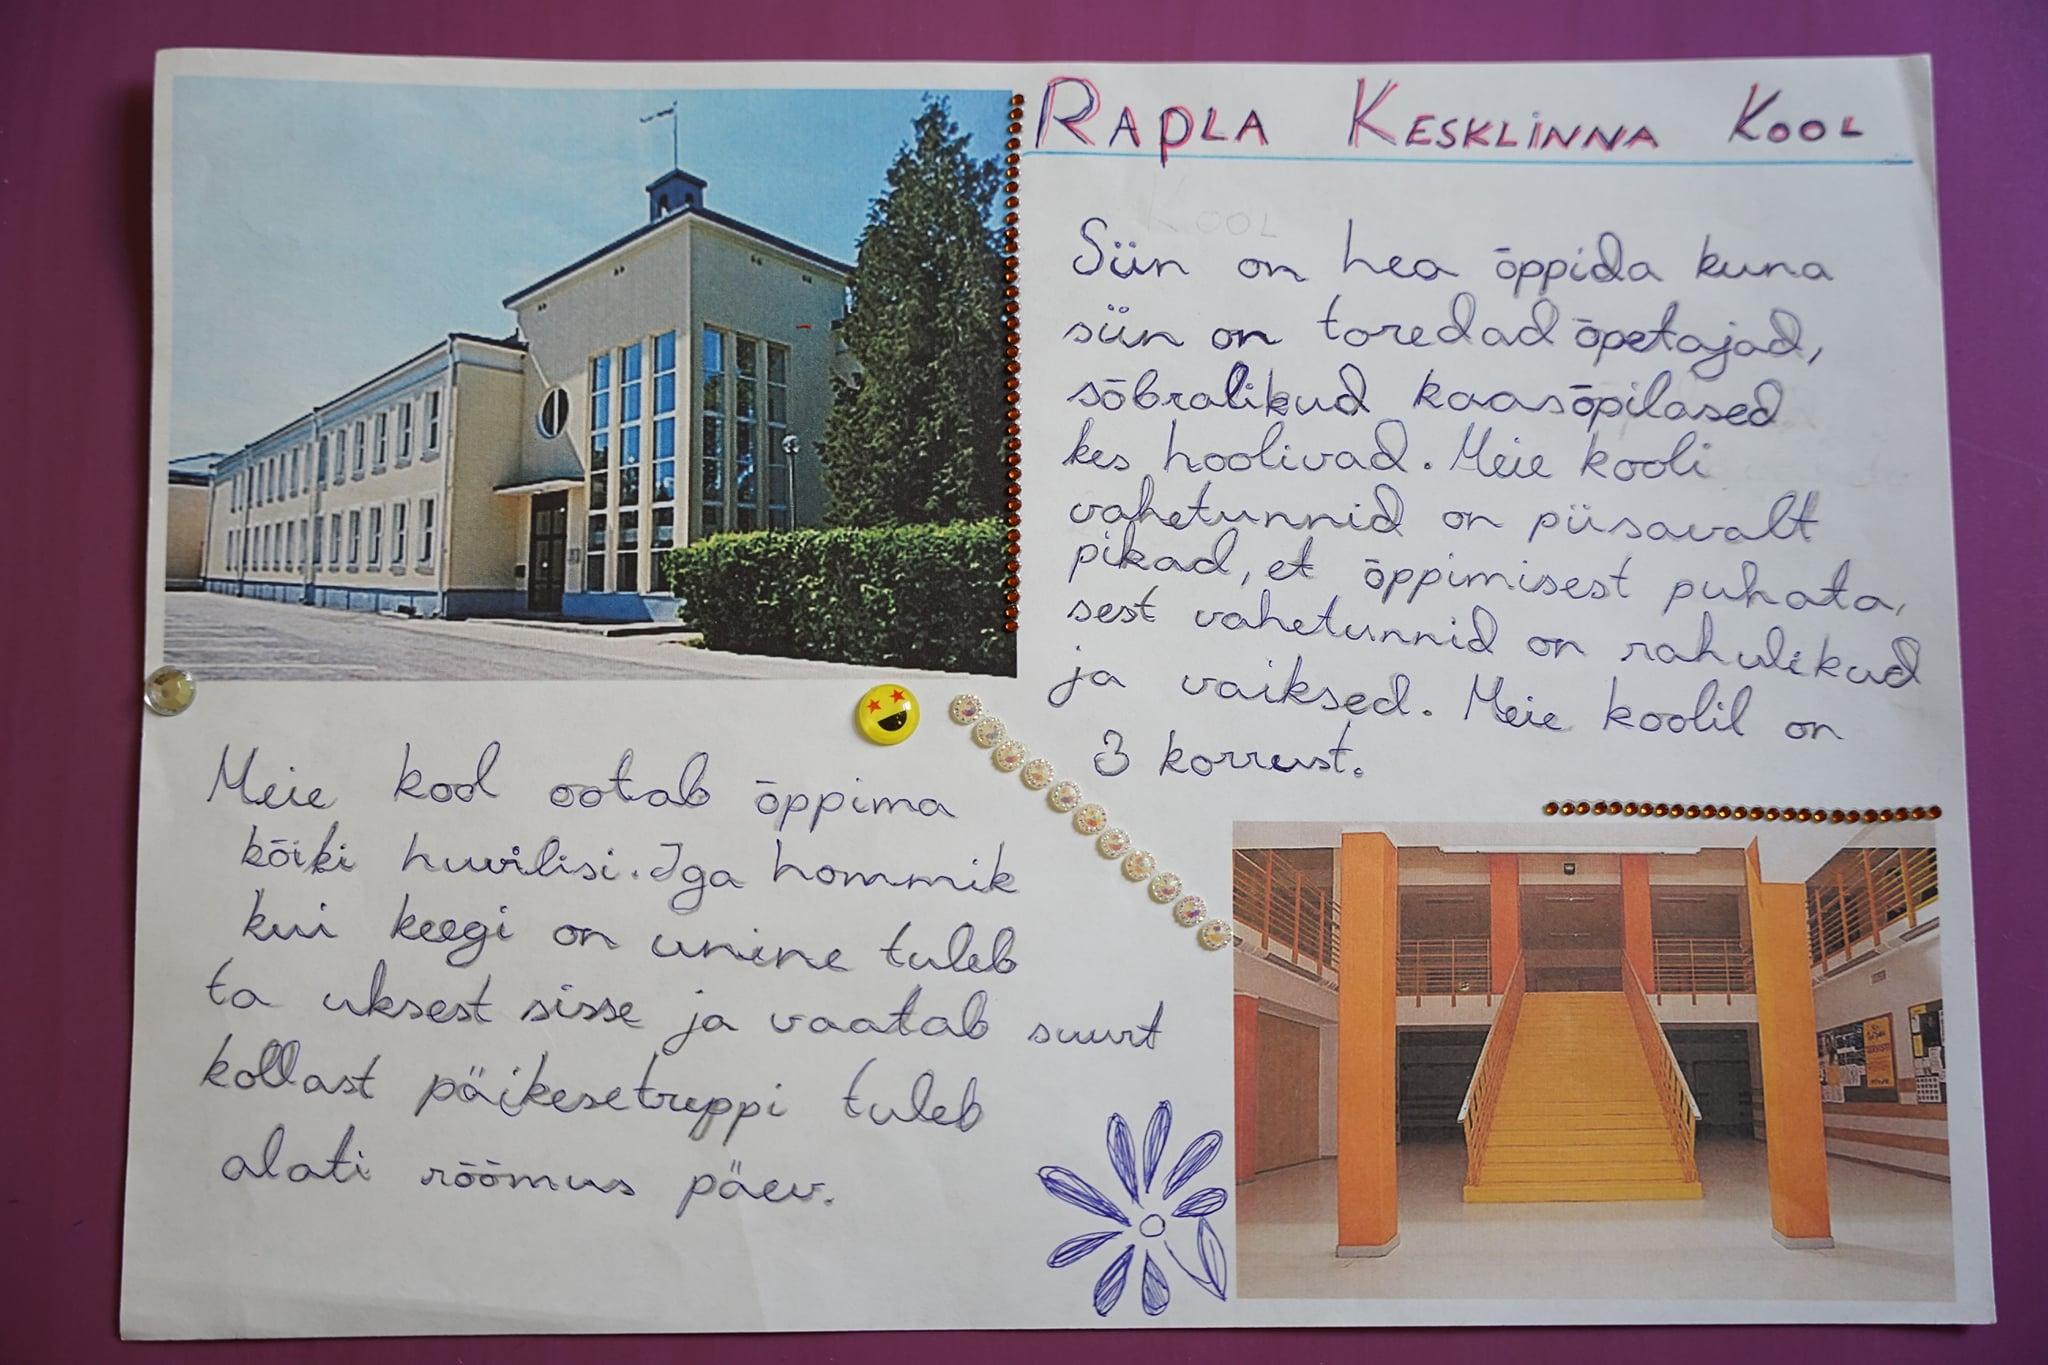 RAPLA KESKLINNA KOOL
KOOL
Siin on hea õppida kuna
siin on toredad õpetajad,
sõbralikud kaasõpilased
kes hoolivad. Meie kooli
vahetunnid on piisavalt
pikad, et õppimisest puhata,
sest vahetunnid on rahulikud
ja vaiksed. Meie koolil on
3 korrust.
Meie kool ootab õppima
kõiki huvilisi. Iga hommik
kui keegi on unine tuleb
ta uksest sisse ja vaatab suurt
kollast päikesetreppi tuleb
alati rõõmus päev.